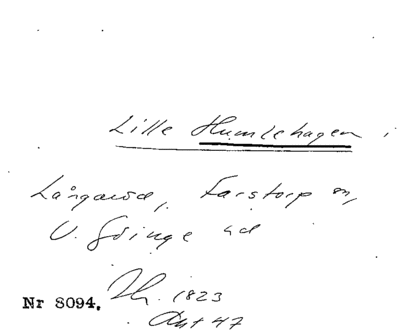 Lille Humlehagen,
Långaröd, Farstorp sn,
V. Göinge hd
Nr 8094. Th. 1823
Akt 47